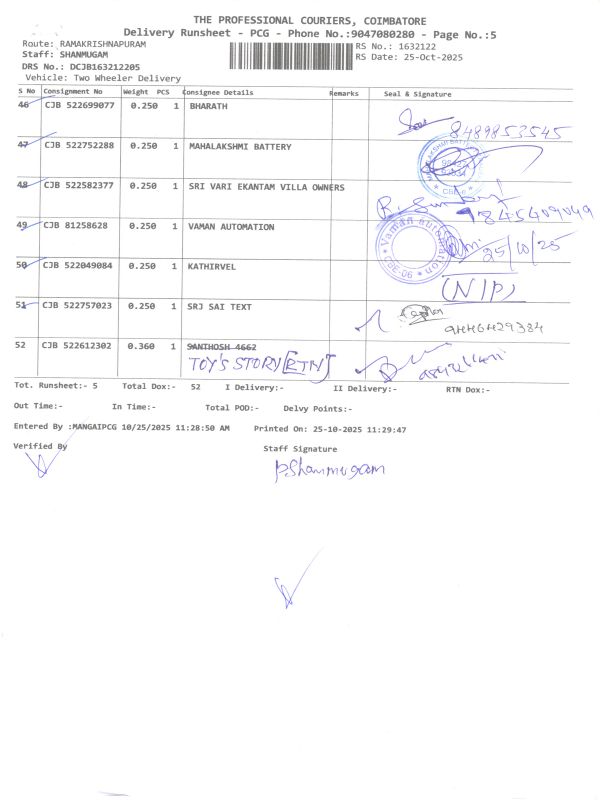 THE PROFESSIONAL COURIERS, COIMBATORE
Delivery Runsheet - PCG - Phone No.:9047080280 - Page No.:5
Route: RAMAKRISHNAPURAM
RS No.: 1632122
Staff: SHANMUGAM
RS Date: 25-Oct-2025
DRS No.: DCJB163212205
Vehicle: Two Wheeler Delivery
S No Consignment No Weight PCS Consignee Details Remarks Seal & Signature
46 CJB 522699077 0.250 1 BHARATH
8489853545
47 CJB 522752288 0.250 1 MAHALAKSHMI BATTERY
48 CJB 522582377 0.250 1 SRI VARI EKANTAM VILLA OWNERS
9845409049
49 CJB 81258628 0.250 1 VAMAN AUTOMATION
Vaman automation
25/10/25
50 CJB 522049084 0.250 1 KATHIRVEL
(NIP)
51 CJB 522757023 0.250 1 SRJ SAI TEXT
52 CJB 522612302 0.360 1 SANTHOSH 4662
TOY'S STORY [RTN]
Tot. Runsheet:- 5 Total Dox:- 52 I Delivery:- II Delivery:- RTN Dox:-
Out Time:- In Time:- Total POD:- Delvy Points:-
Entered By :MANGAIPCG 10/25/2025 11:28:50 AM Printed On: 25-10-2025 11:29:47
Verified By Staff Signature
P.Shanmugam